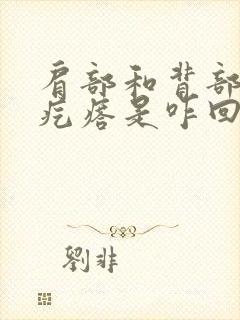 肩部和背部
疙瘩是咋回
劉非